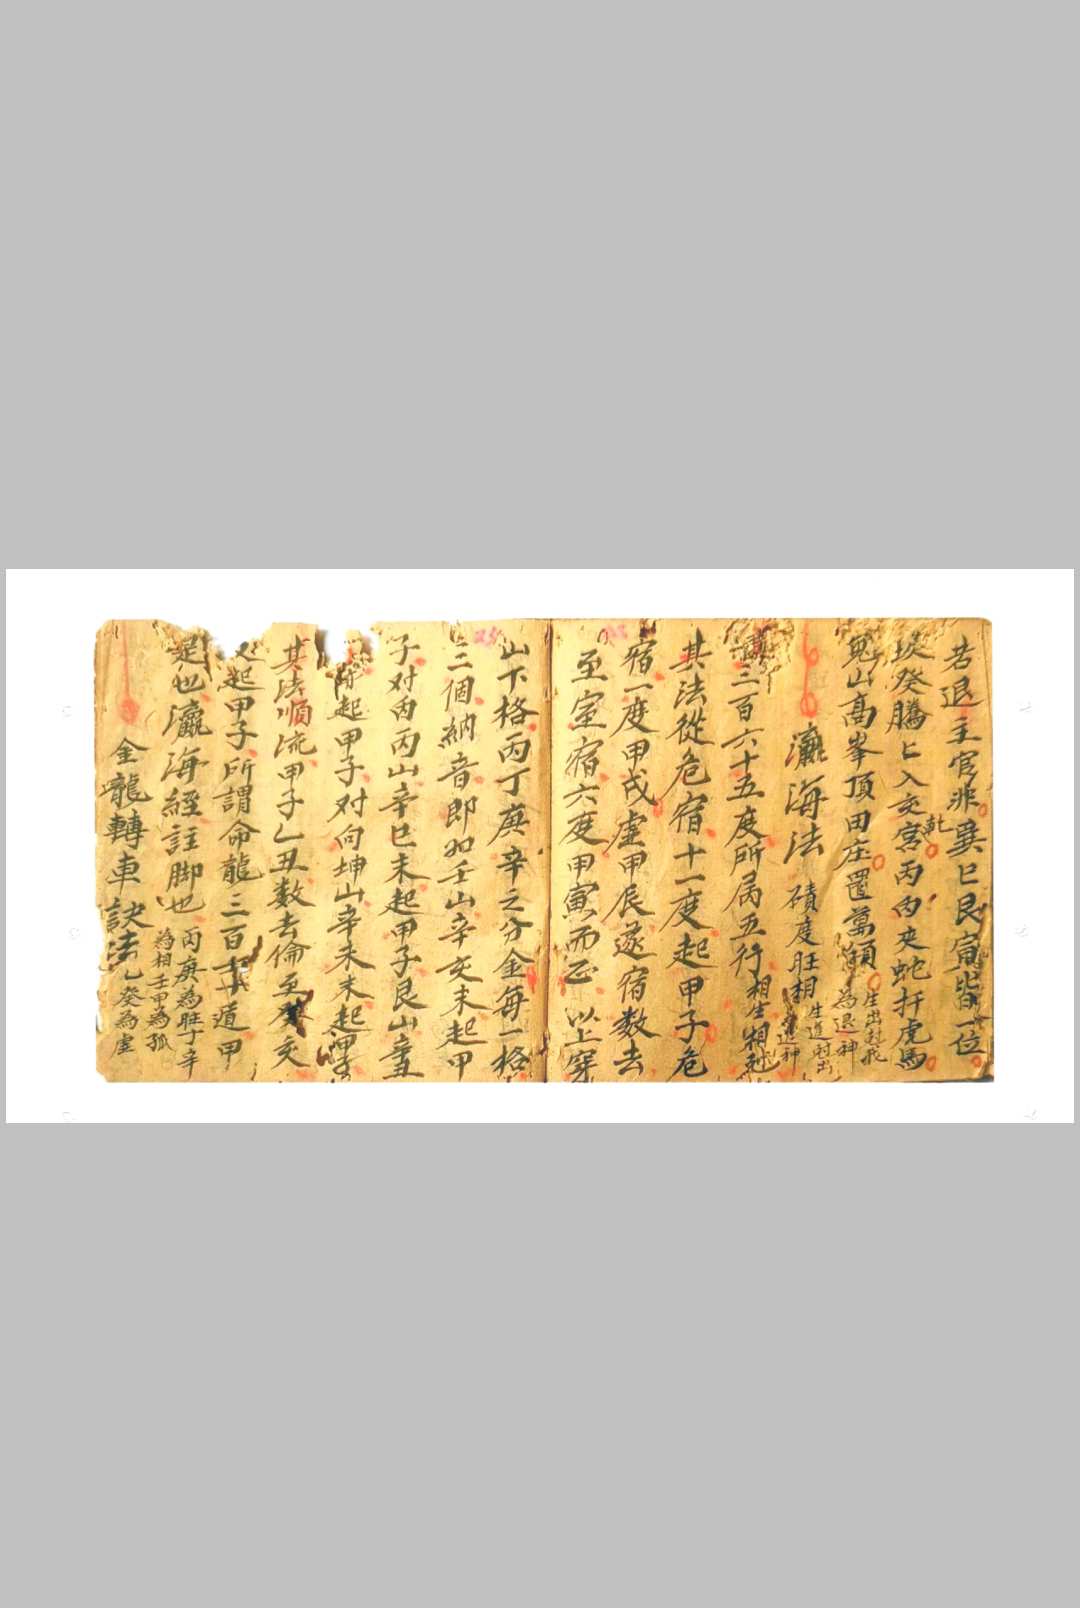 若退主官非巽巳艮寅皆一位
坎癸騰〻入亥宮丙向夹蛇扞虎馬
乹
嵬山髙峯頂田庄置萬頃
生出尅我
為退神
瀛海法 磧度旺相
生進尅出
進神
三百六十五度所屬五行
相生相尅
其法從危宿十一度起甲子危
宿一度甲戌虚甲辰遂宿数去
至室宿六度甲寅而正 以上穿
山下格丙丁庚辛之分金每一格
三個納音即如壬山辛亥末起甲
子对丙丙山辛巳末起甲子艮山辛丑
起甲子对向坤山辛未末起甲子
其法順流甲子乙丑数去倫至癸亥
又起甲子所謂命龍三百六十道甲
是也瀛海經註脚也
丙庚為旺丁辛
為相壬甲為孤
乙癸為虚
金龍轉車訣法